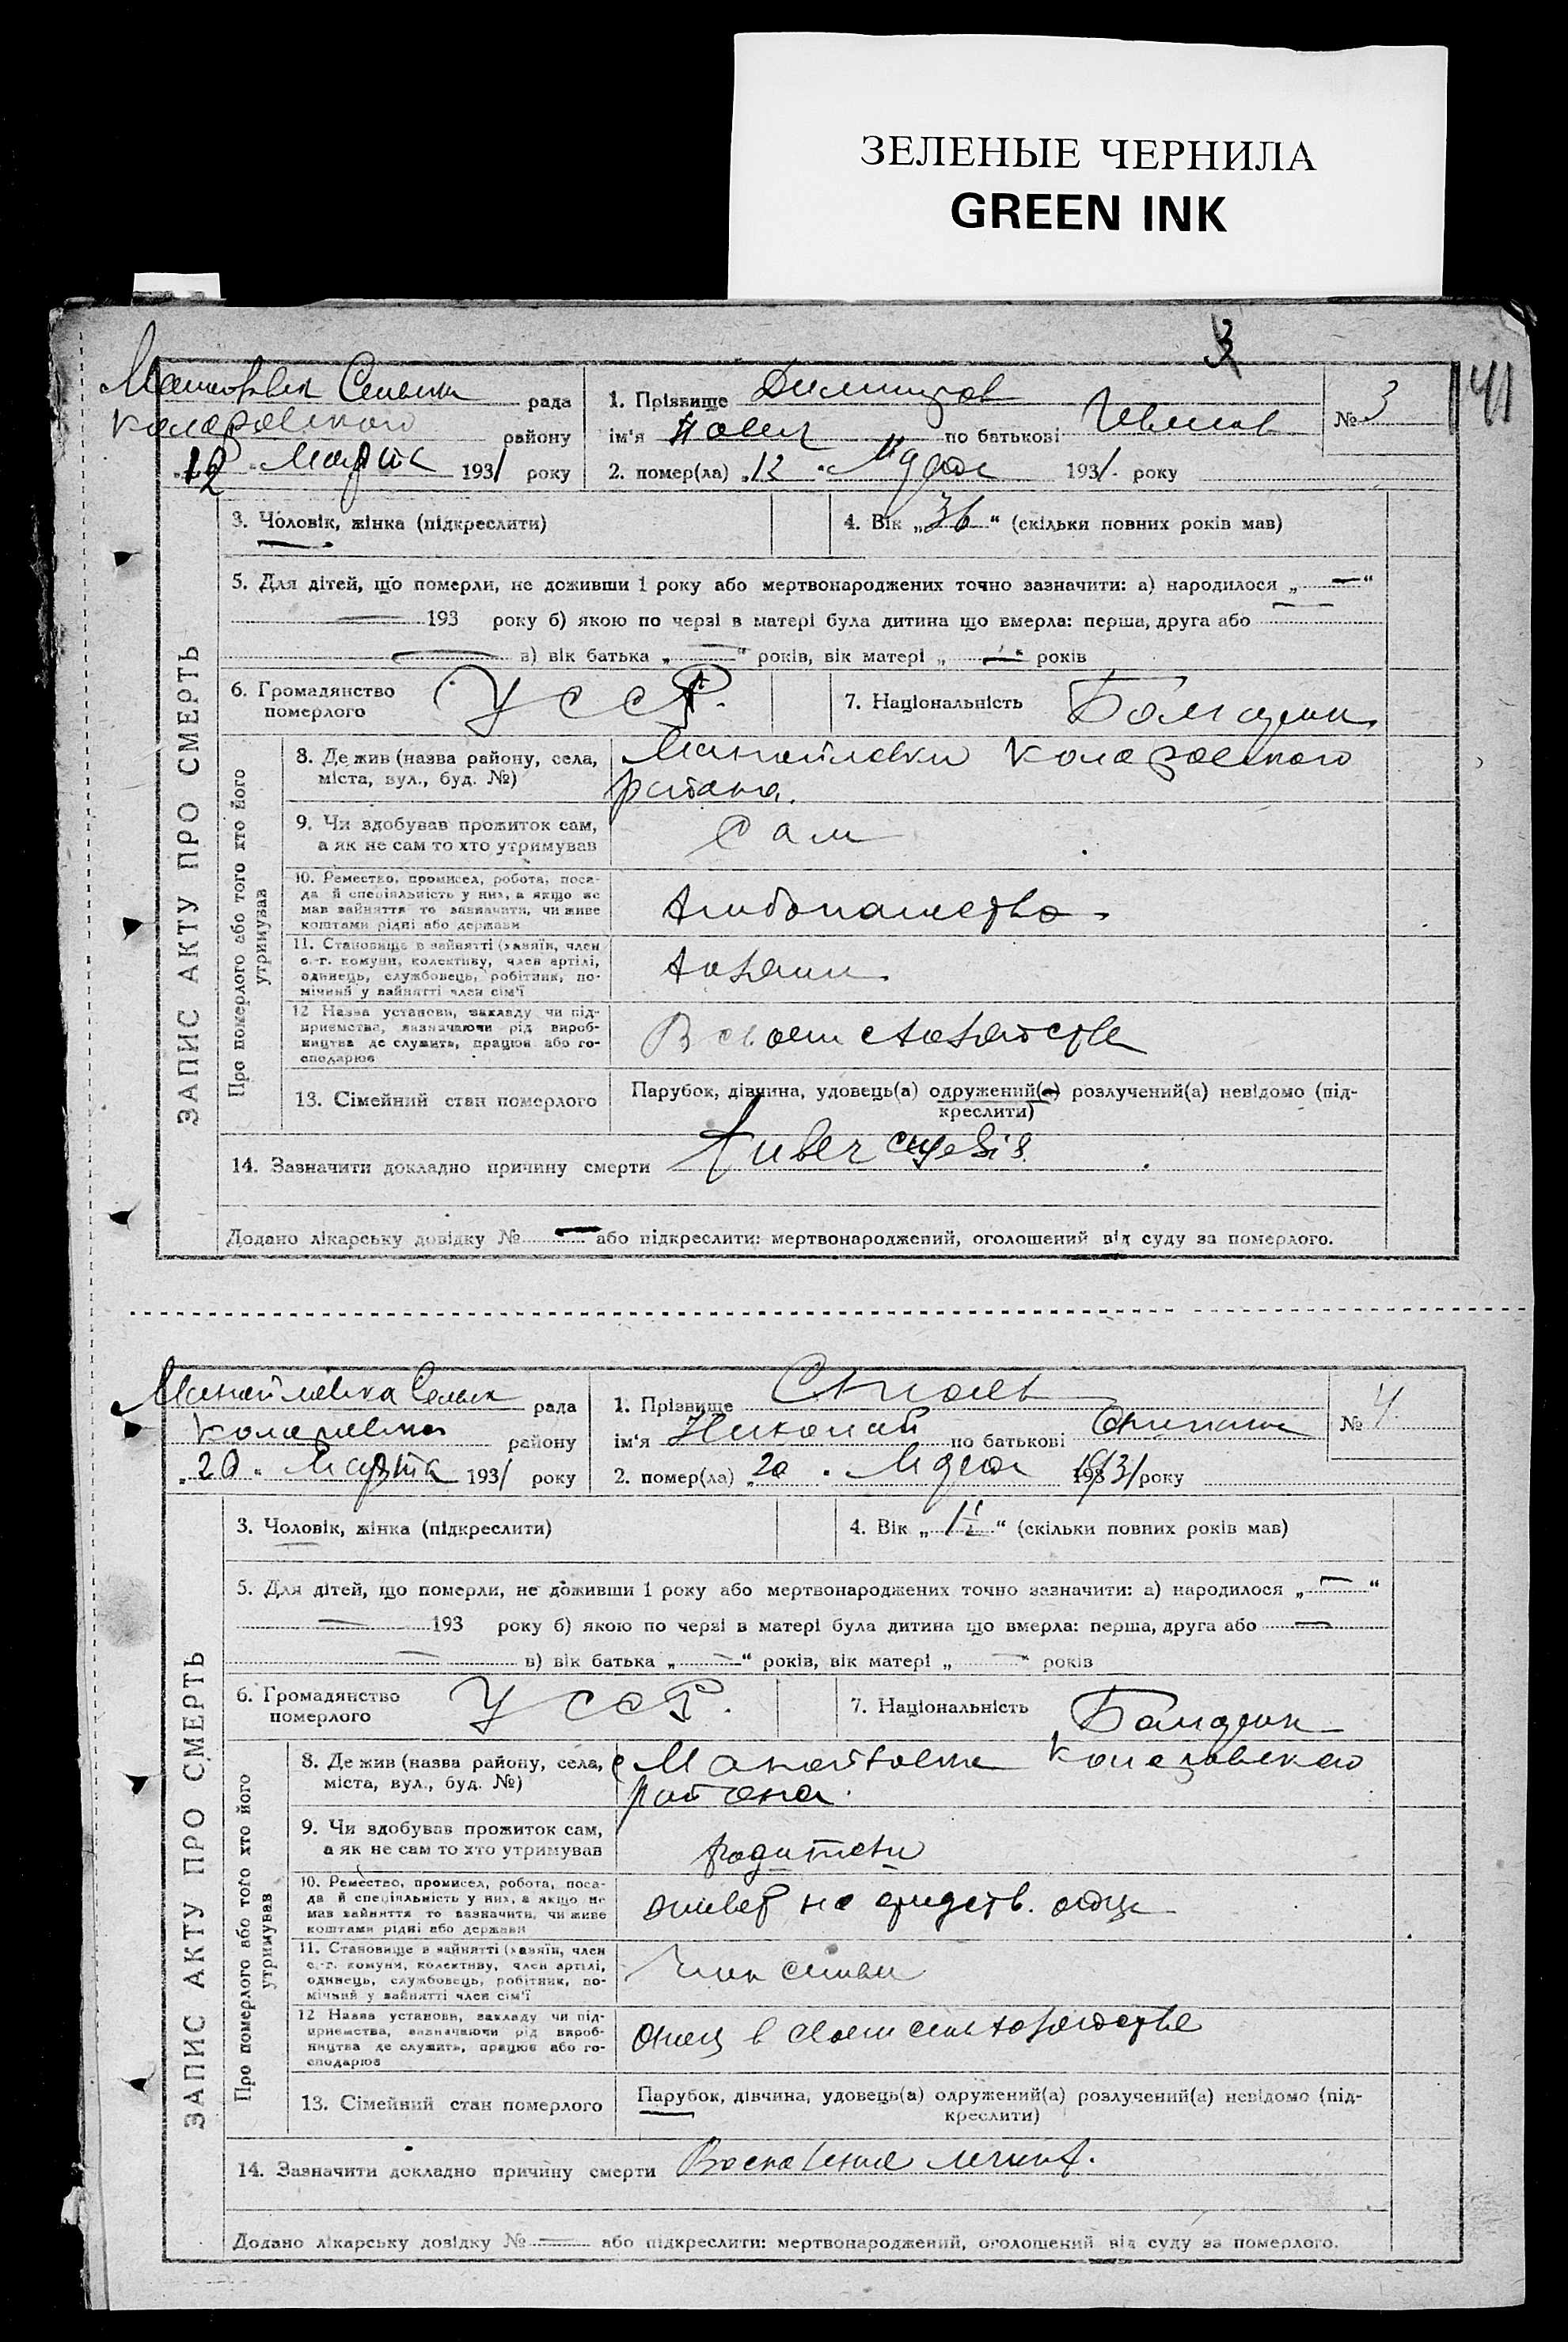 ЗЕЛЕНЫЕ ЧЕРНИЛА
GREEN INK
3
141
рада
району
12 Марта 1931 року
1. Прізвище Димитров
ім'я по батькові
№ 3
2. помер(ла) „12" Марта 1931 року
ЗАПИС АКТУ ПРО СМЕРТЬ
3. Чоловік, жінка (підкреслити)
4. Вік „36" (скільки повних років мав)
5. Для дітей, що померли, не доживши 1 року або мертвонароджених точно зазначити: а) народилося „—"
— 193 року б) якою по черзі в матері була дитина що вмерла: перша, друга або —
— в) вік батька „—" років, вік матері „—" років
6. Громадянство померлого УССР.
7. Національність Болгарин
Про померлого або того хто його утримував
8. Де жив (назва району, села, міста, вул., буд. №)
Манойловки Коларовского
района.
9. Чи здобував прожиток сам, а як не сам то хто утримував
Сам
10. Ремество, промисел, робота, посада й спеціяльність у них, а якщо не мав зайняття то зазначити, чи живе коштами рідні або держави
Хлибопашество
11. Становище в зайнятті (хазяїн, член с.-г. комуни, колективу, член артілі, одинець, службовець, робітник, помічний у зайнятті член сім'ї
Хозяин
12 Назва установи, закладу чи підприємства, зазначаючи рід виробництва де служить, працює або господарює
В своем хозяйстве
13. Сімейний стан померлого
Парубок, дівчина, удовець(а) одружений(а) розлучений(а) невідомо (підкреслити)
14. Зазначити докладно причину смерти
Додано лікарську довідку № — або підкреслити: мертвонароджений, оголошений від суду за померлого.
рада
району
„20" Марта 1931 року
1. Прізвище
ім'я Николай по батькові
№ 4
2. помер(ла) „20" Марта 1931 року
ЗАПИС АКТУ ПРО СМЕРТЬ
3. Чоловік, жінка (підкреслити)
4. Вік „1½" (скільки повних років мав)
5. Для дітей, що померли, не доживши 1 року або мертвонароджених точно зазначити: а) народилося „—"
— 193 року б) якою по черзі в матері була дитина що вмерла: перша, друга або —
— в) вік батька „—" років, вік матері „—" років
6. Громадянство померлого УССР.
7. Національність Болгарин
Про померлого або того хто його утримував
8. Де жив (назва району, села, міста, вул., буд. №)
Коларовского
района.
9. Чи здобував прожиток сам, а як не сам то хто утримував
родители
10. Ремество, промисел, робота, посада й спеціяльність у них, а якщо не мав зайняття то зазначити, чи живе коштами рідні або держави
живет на средств. отца
11. Становище в зайнятті (хазяїн, член с.-г. комуни, колективу, член артілі, одинець, службовець, робітник, помічний у зайнятті член сім'ї
Член семьи
12 Назва установи, закладу чи підприємства, зазначаючи рід виробництва де служить, працює або господарює
отец в своем сельхозяйстве
13. Сімейний стан померлого
Парубок, дівчина, удовець(а) одружений(а) розлучений(а) невідомо (підкреслити)
14. Зазначити докладно причину смерти Воспаление легких.
Додано лікарську довідку № — або підкреслити: мертвонароджений, оголошений від суду за померлого.